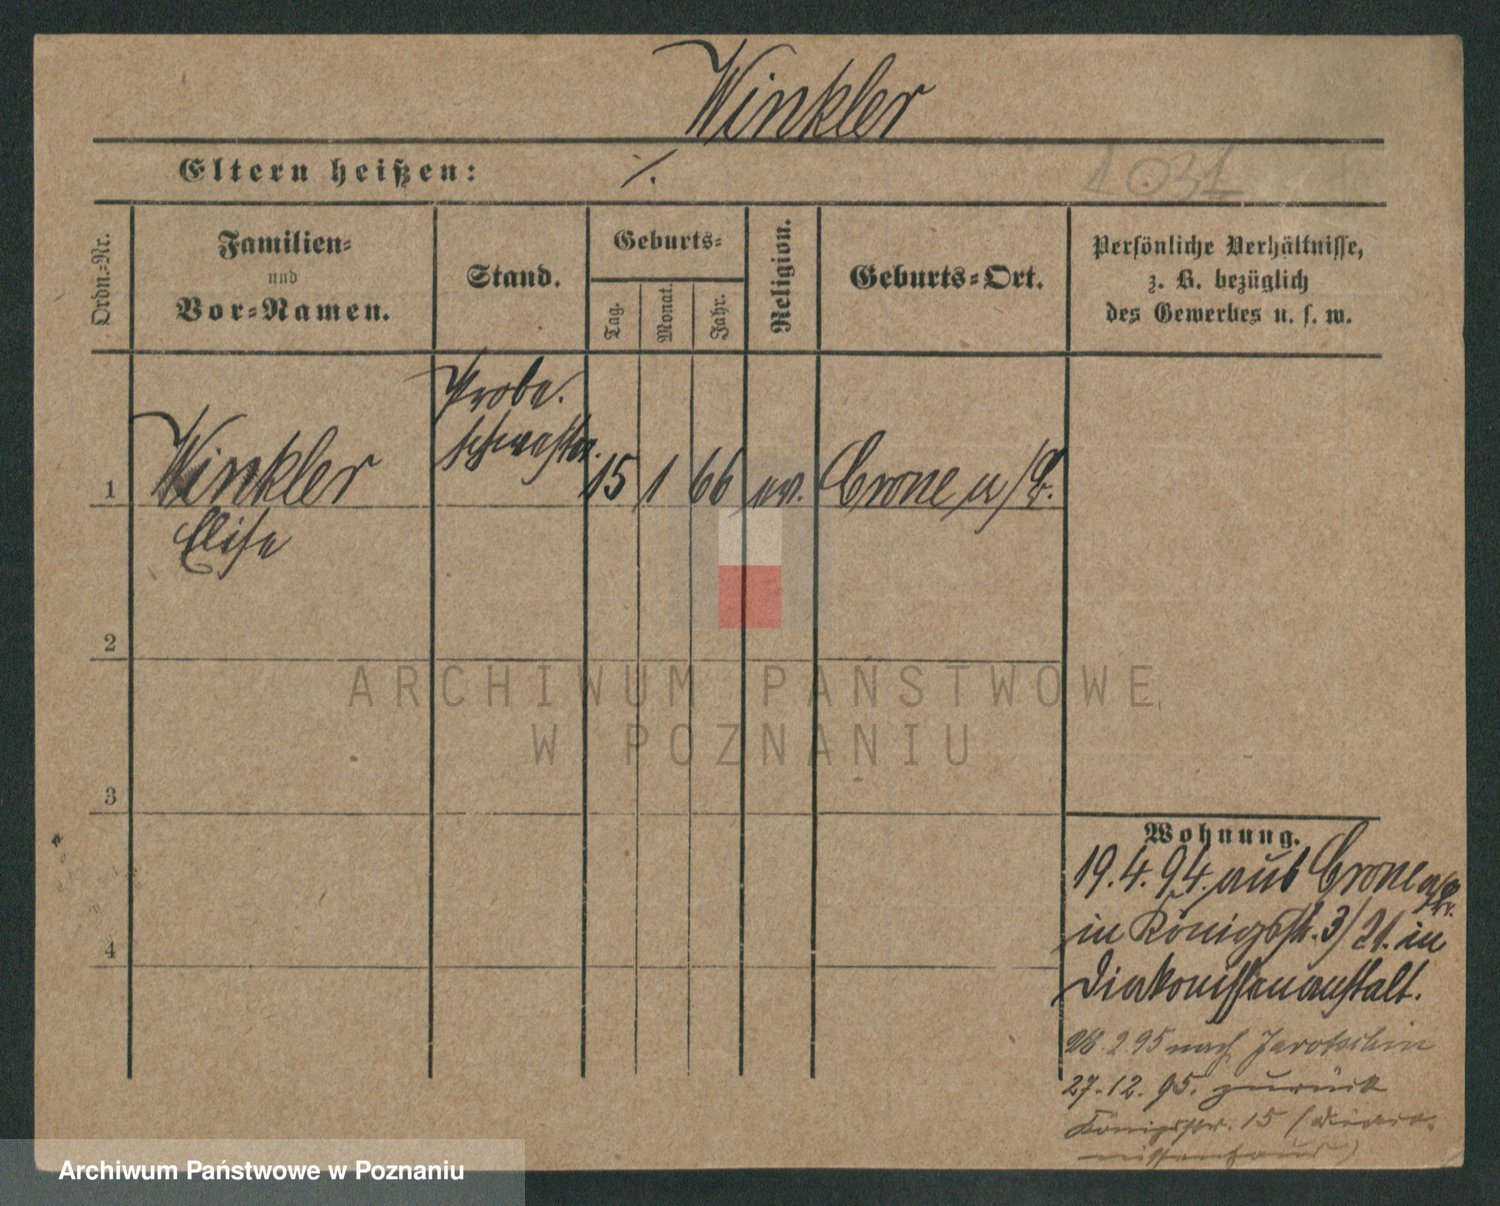 Winkler
Eltern heißen: ·/.
1031
Ordn.-Nr.
Familien-
und
Vor-Namen.
Stand.
Geburts-
Tag.
Monat.
Jahr.
Religion.
Geburts-Ort.
Persönliche Verhältnisse,
z. B. bezüglich
des Gewerbes u. s. w.
Probe.
schwester.
1 Winkler 15 1 66 ev. Crone a/B.
Elise
2
ARCHIWUM PAŃSTWOWE
W POZNANIU
3
Wohnung.
19.4.94. aus Crone a/B.
in Königsstr. 3/21. in
Diakonissenanstalt.
4
28.2.95 nach Jarotschin
27.12.95. zurück
Königsstr. 15 (Diaco-
nissenhaus)
Archiwum Państwowe w Poznaniu